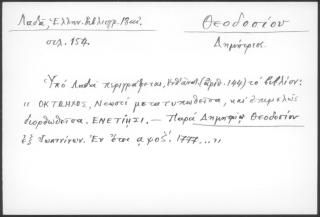 Λαδᾶ, Ἑλλην. Βιβλιογρ.
Θεοδοσίου
σελ. 154.
Δημήτριος
Ὑπὸ Λαδᾶ περιγράφεται, (ἀριθ. 144) τὸ βιβλίον:
" ΟΚΤΩΗΧΟΣ, Νεωστὶ μετατυπωθεῖσα, καὶ ἐπιμελῶς
διορθωθεῖσα. ΕΝΕΤΙΗΣΙ. — Παρὰ Δημητρίῳ Θεοδοσίου
ἐξ Ἰωαννίνων. Ἐν ἔτει αψοζ΄. 1777... "